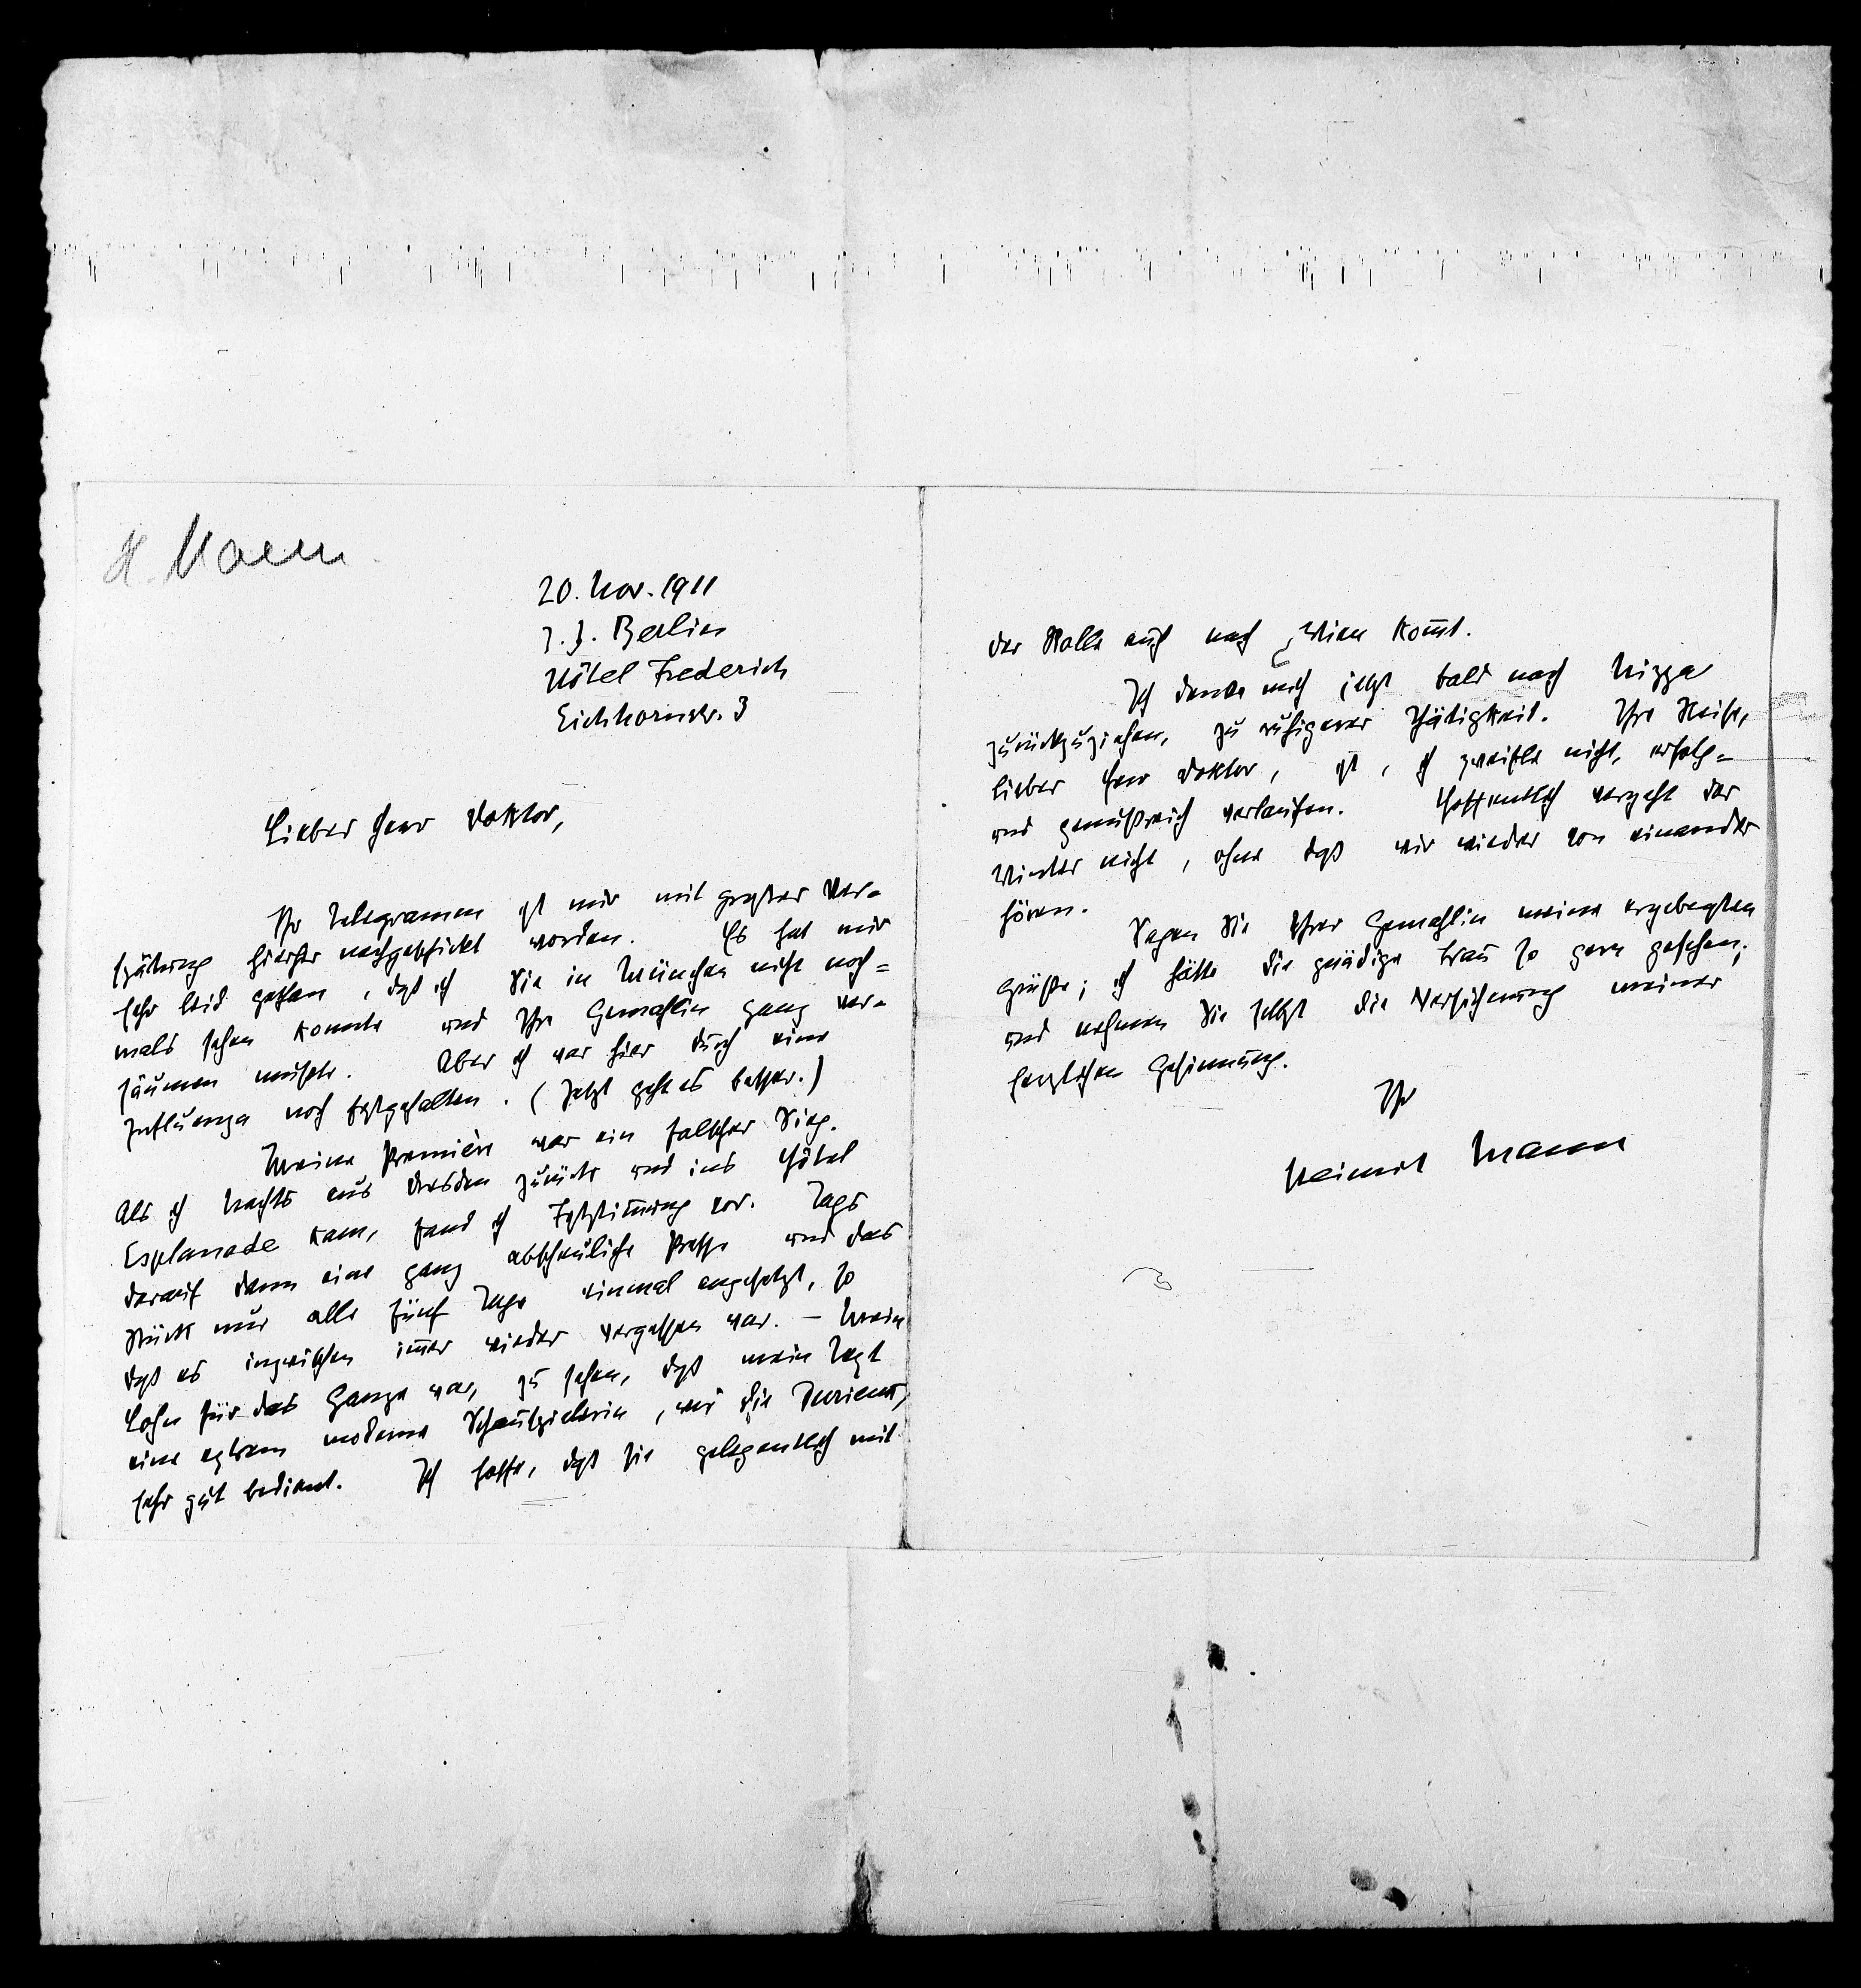 H. Mann
20. Nov. 1911
z. Z. Berlin
Hôtel Frederich
Eichhornstr. 3
Lieber Herr Doktor,
Ihr Telegramm ist mir mit großer Ver-
spätung hierher nachgeschickt worden. Es hat mir
sehr leid gethan, daß ich Sie in München nicht noch-
mals sehen konnte und Ihre Gemahlin ganz ver-
säumen mußte. Aber ich war hier durch eine
Influenza noch festgehalten. (Jetzt geht es besser.)
Meine Première war ein falscher Sieg.
Als ich Nachts aus Dresden zurück und ins Hôtel
Esplanade kam, fand ich Feststim̄ung vor. Tags
darauf dann eine ganz abscheuliche Presse und das
Stück nur alle fünf Tage einmal angesetzt, so
daß es inzwischen im̄er wieder vergessen war. – Mein
Lohn für das Ganze war, zu sehen, daß mein Text
eine extrem moderne Schauspielerin, wie die Durieux,
sehr gut bedient. Ich hoffe, daß sie gelegentlich mit
der Rolle auch nach Wien kom̄t.
Ich denke mich jetzt bald nach Nizza
zurückzuziehen, zu ruhigerer Thätigkeit. Ihre Reise,
lieber Herr Doktor, ist, ich zweifle nicht, erfolg-
und genußreich verlaufen. Hoffentlich vergeht der
Winter nicht, ohne daß wir wieder von einander
hören.
Sagen Sie Ihrer Gemahlin meine ergebensten
Grüße; ich hätte die gnädige Frau so gern gesehen;
und nehmen Sie selbst die Versicherung meiner
herzlichen Gesinnung.
Ihr
Heinrich Mann